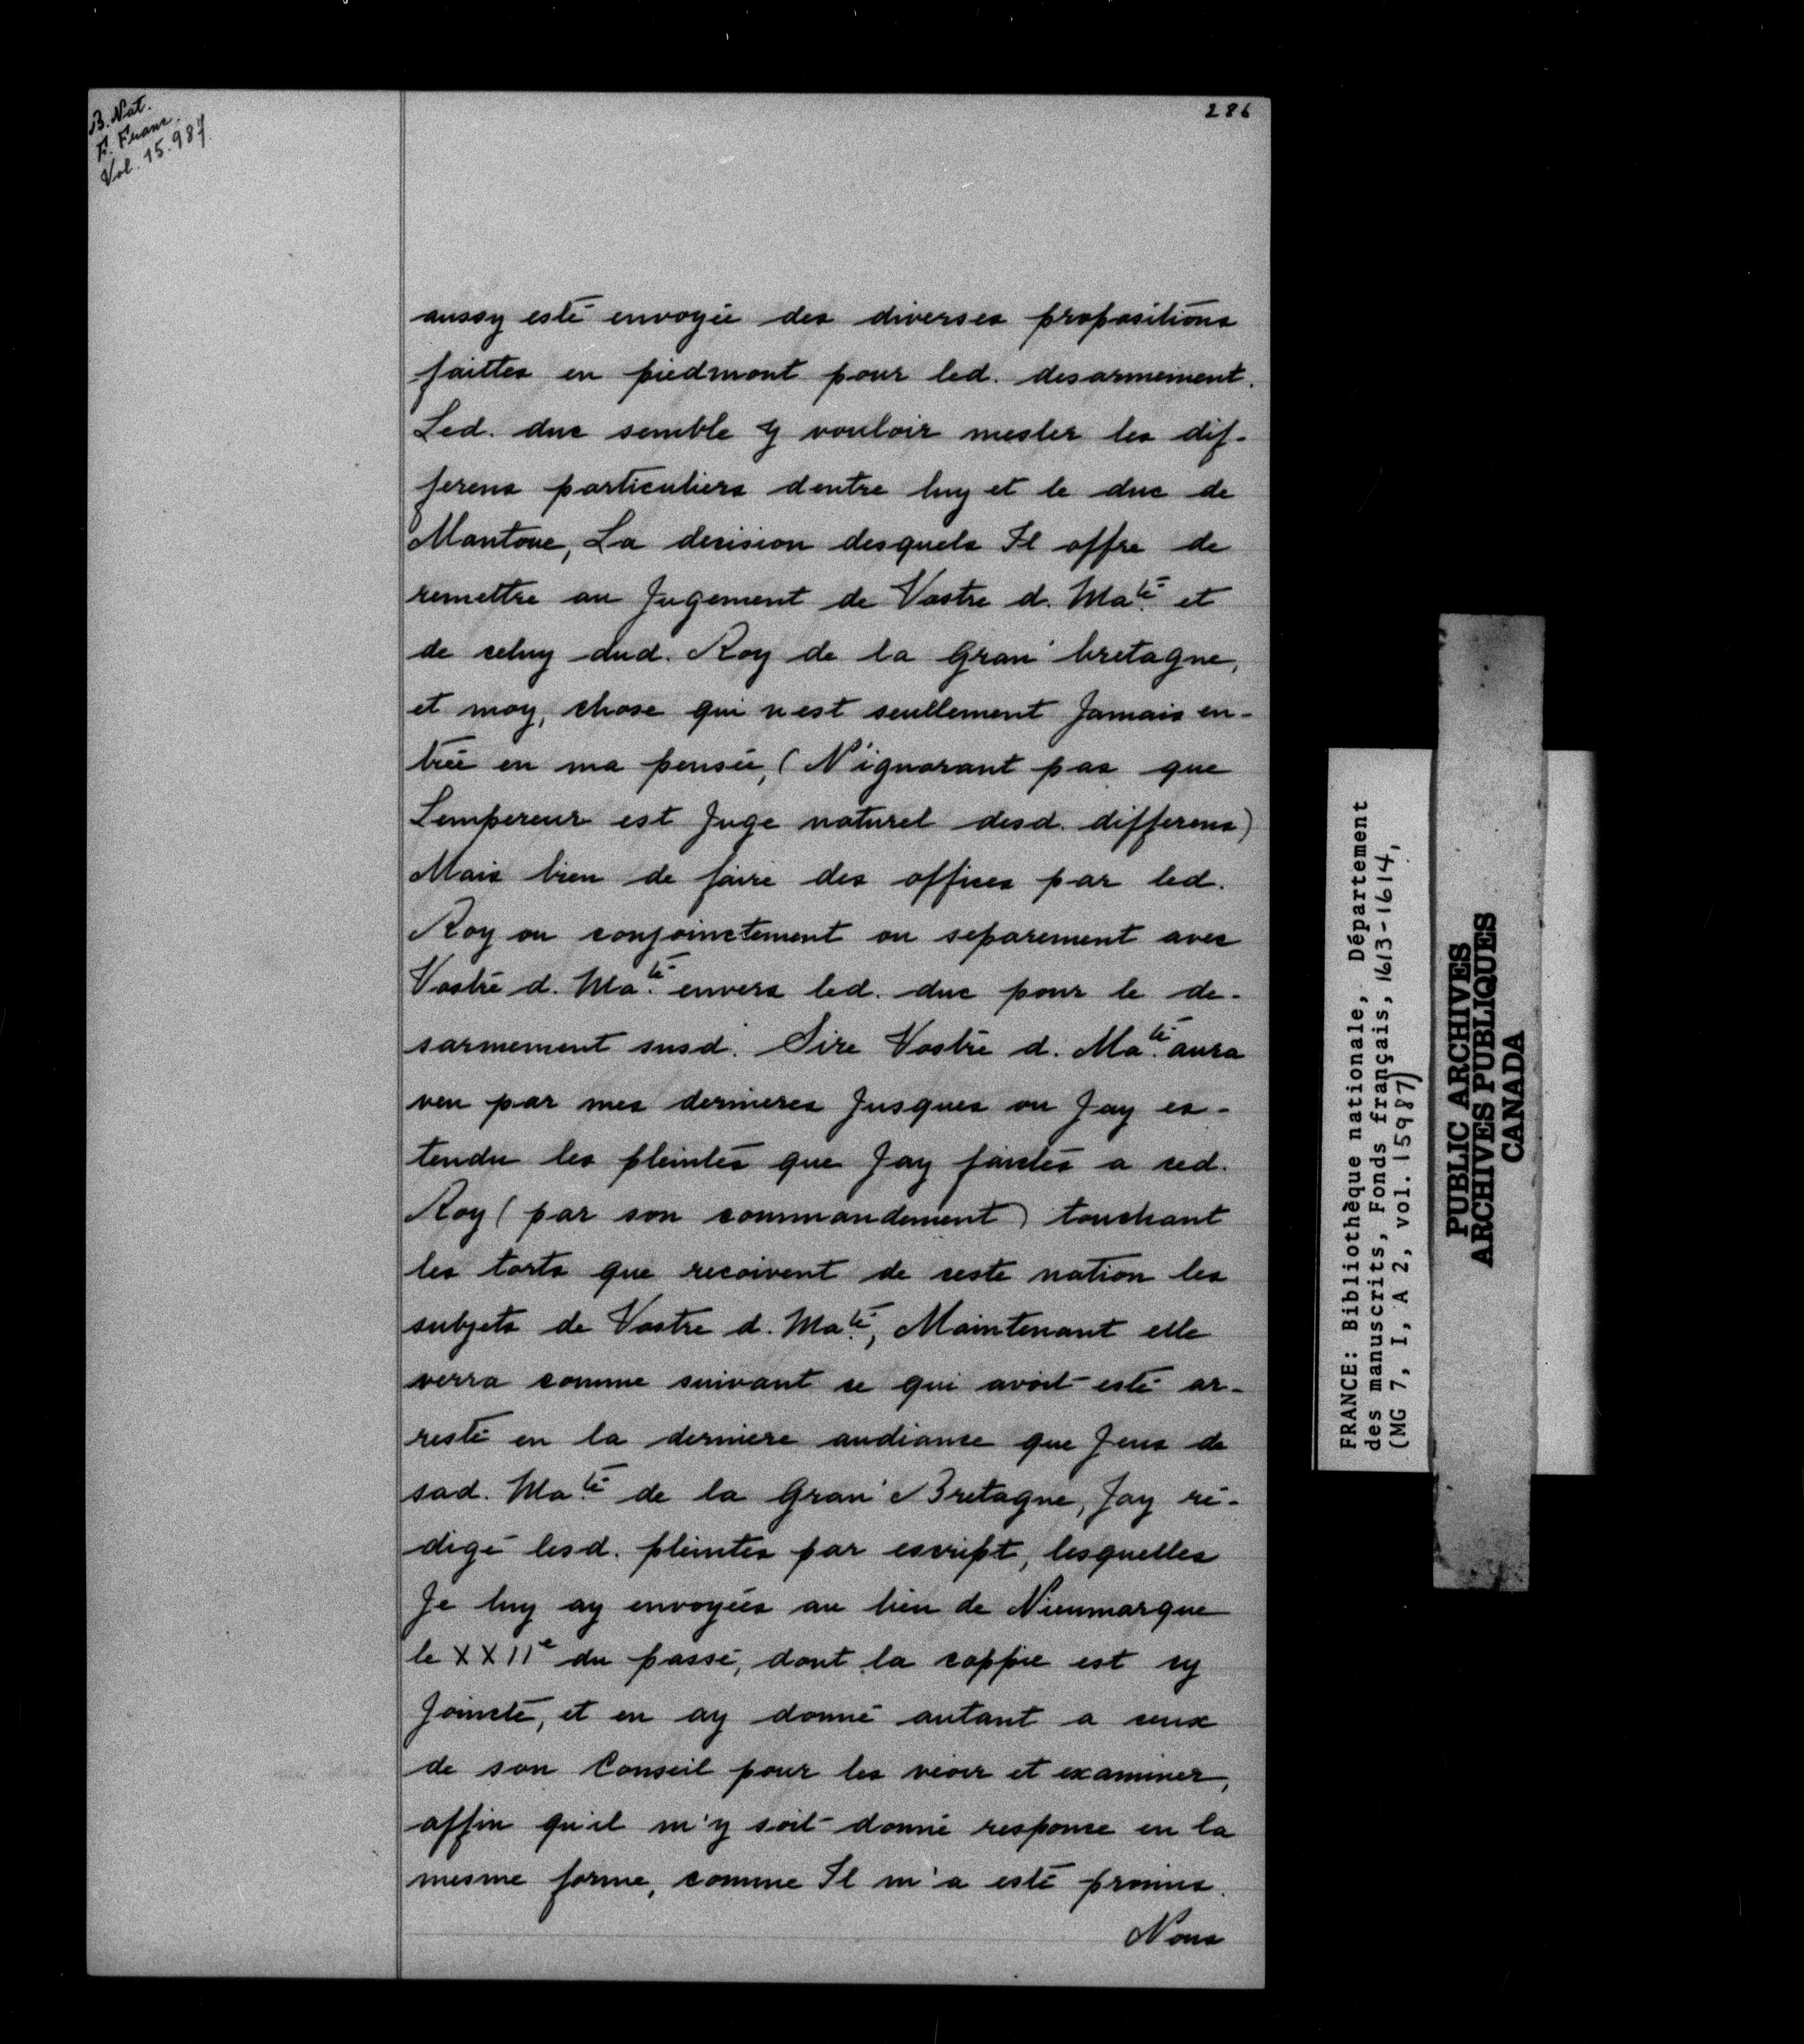 B. Nat.
F. Franc.
Vol. 15.987
286
aussy esté envoyée des diverses propositions
faittes en piedmont pour led. desarmement.
Led. duc semble y vouloir mesler les dif-
ferens particuliers dentre luy et le duc de
Mantoue, La decision desquels Il offre de
remettre au Jugement de Vostre d. Ma.té et
de celuy dud. Roy de la Gran' bretagne,
et moy, chose qui nest seullement Jamais en-
trée en ma pensée, (N'ignorant pas que
Lempereur est Juge naturel desd. differens)
Mais bien de faire des offices par led.
Roy ou conjoinctement ou separement avec
Vostre d. Ma.té envers led. duc pour le de-
sarmement susd. Sire Vostre d. Ma.té aura
veu par mes dernieres Jusques ou Jay es-
tendu les pleintes que Jay faictes a ced.
Roy (par son commandement) touchant
les torts que recoivent de ceste nation les
subjets de Vostre d. Ma.té, Maintenant elle
verra comme suivant ce qui avoit esté ar-
resté en la derniere audiance que Jeus de
sad. Ma.té de la Gran' Bretagne, Jay ré-
digé lesd. pleintes par escript, lesquelles
Je luy ay envoyées au lieu de Nieumarque
le XXIIe du passé, dont la coppie est cy
Joincte, et en ay donné autant a ceux
de son Conseil pour les veoir et examiner,
affin qu'il m'y soit donné response en la
mesme forme, comme Il m'a esté promis.
Nous
FRANCE: Bibliothèque nationale, Département
des manuscrits, Fonds français, 1613-1614,
(MG 7, I, A 2, vol. 15987)
PUBLIC ARCHIVES
ARCHIVES PUBLIQUES
CANADA